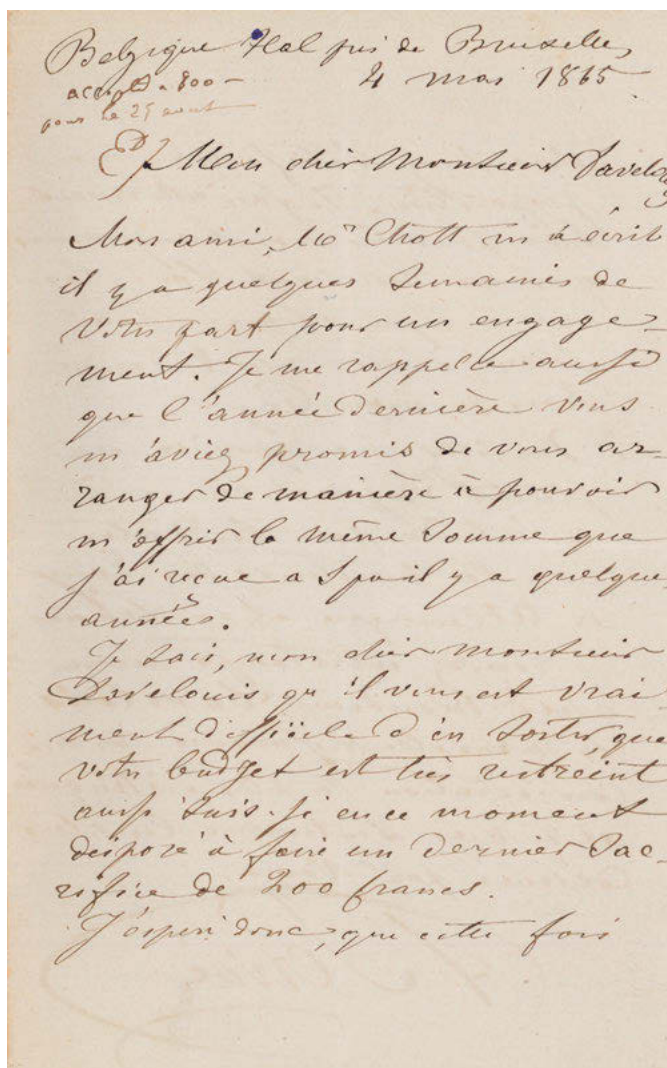 Belgique Hal près de Bruxelles
4 mai 1865
accepté a 800 –
pour le 25 aout
Mon cher Monsieur Davelouis
Mon ami, Mr Chott m'a écrit
il y a quelques semaines de
Votre part pour un engage-
ment. Je me rappelle aussi
que l'année dernière vous
m'aviez promis de vous ar-
ranger de manière à pouvoir
m'offrir la même somme que
j'ai reçue a Spa il y a quelques
années.
Je sais, mon cher Monsieur
Davelouis qu'il vous est vrai-
ment difficile d'en sortir, que
votre budget est très restreint
aussi suis-je en ce moment
disposé à faire un dernier sac-
rifice de 200 francs.
J'espère donc, que cette fois